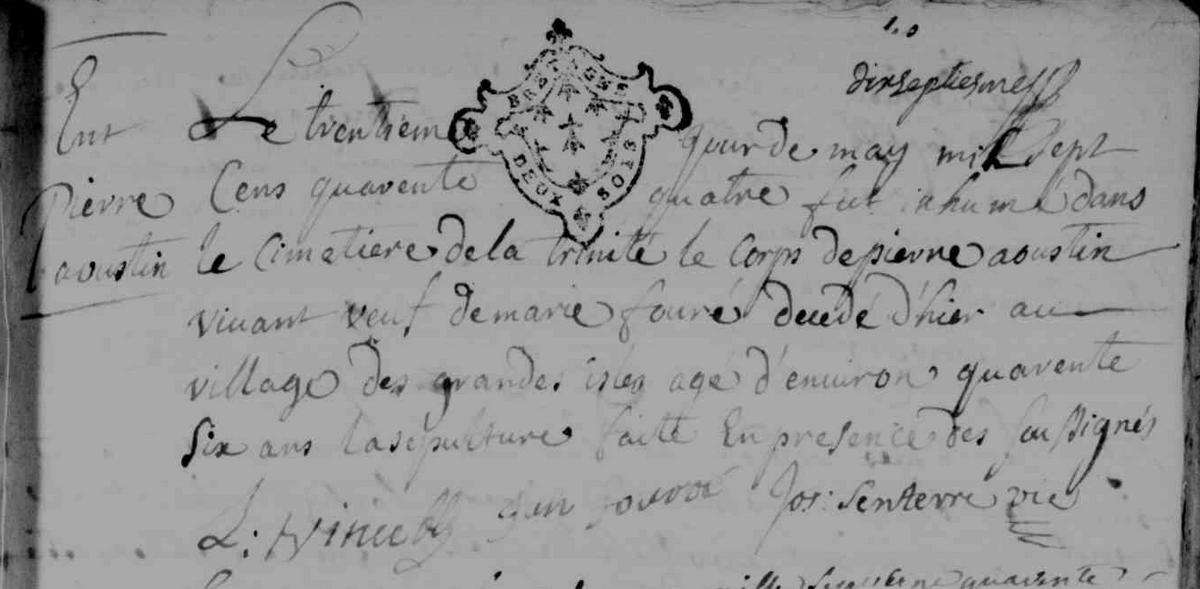 dixseptiesme
Ent
Pierre
aoustin
Le trentieme jour de may mil sept
Cens quarente quatre fut inhumé dans
le Cimetiere de la trinité le Corps de pierre aoustin
vivant veuf de marie fouré decedé d'hier au
village des grandes isles agé d'environ quarente
six ans la sepulture faite En presence des soussignés
Jos: Senterre vic
BRETAGNE
DEUX SOLS
quarente